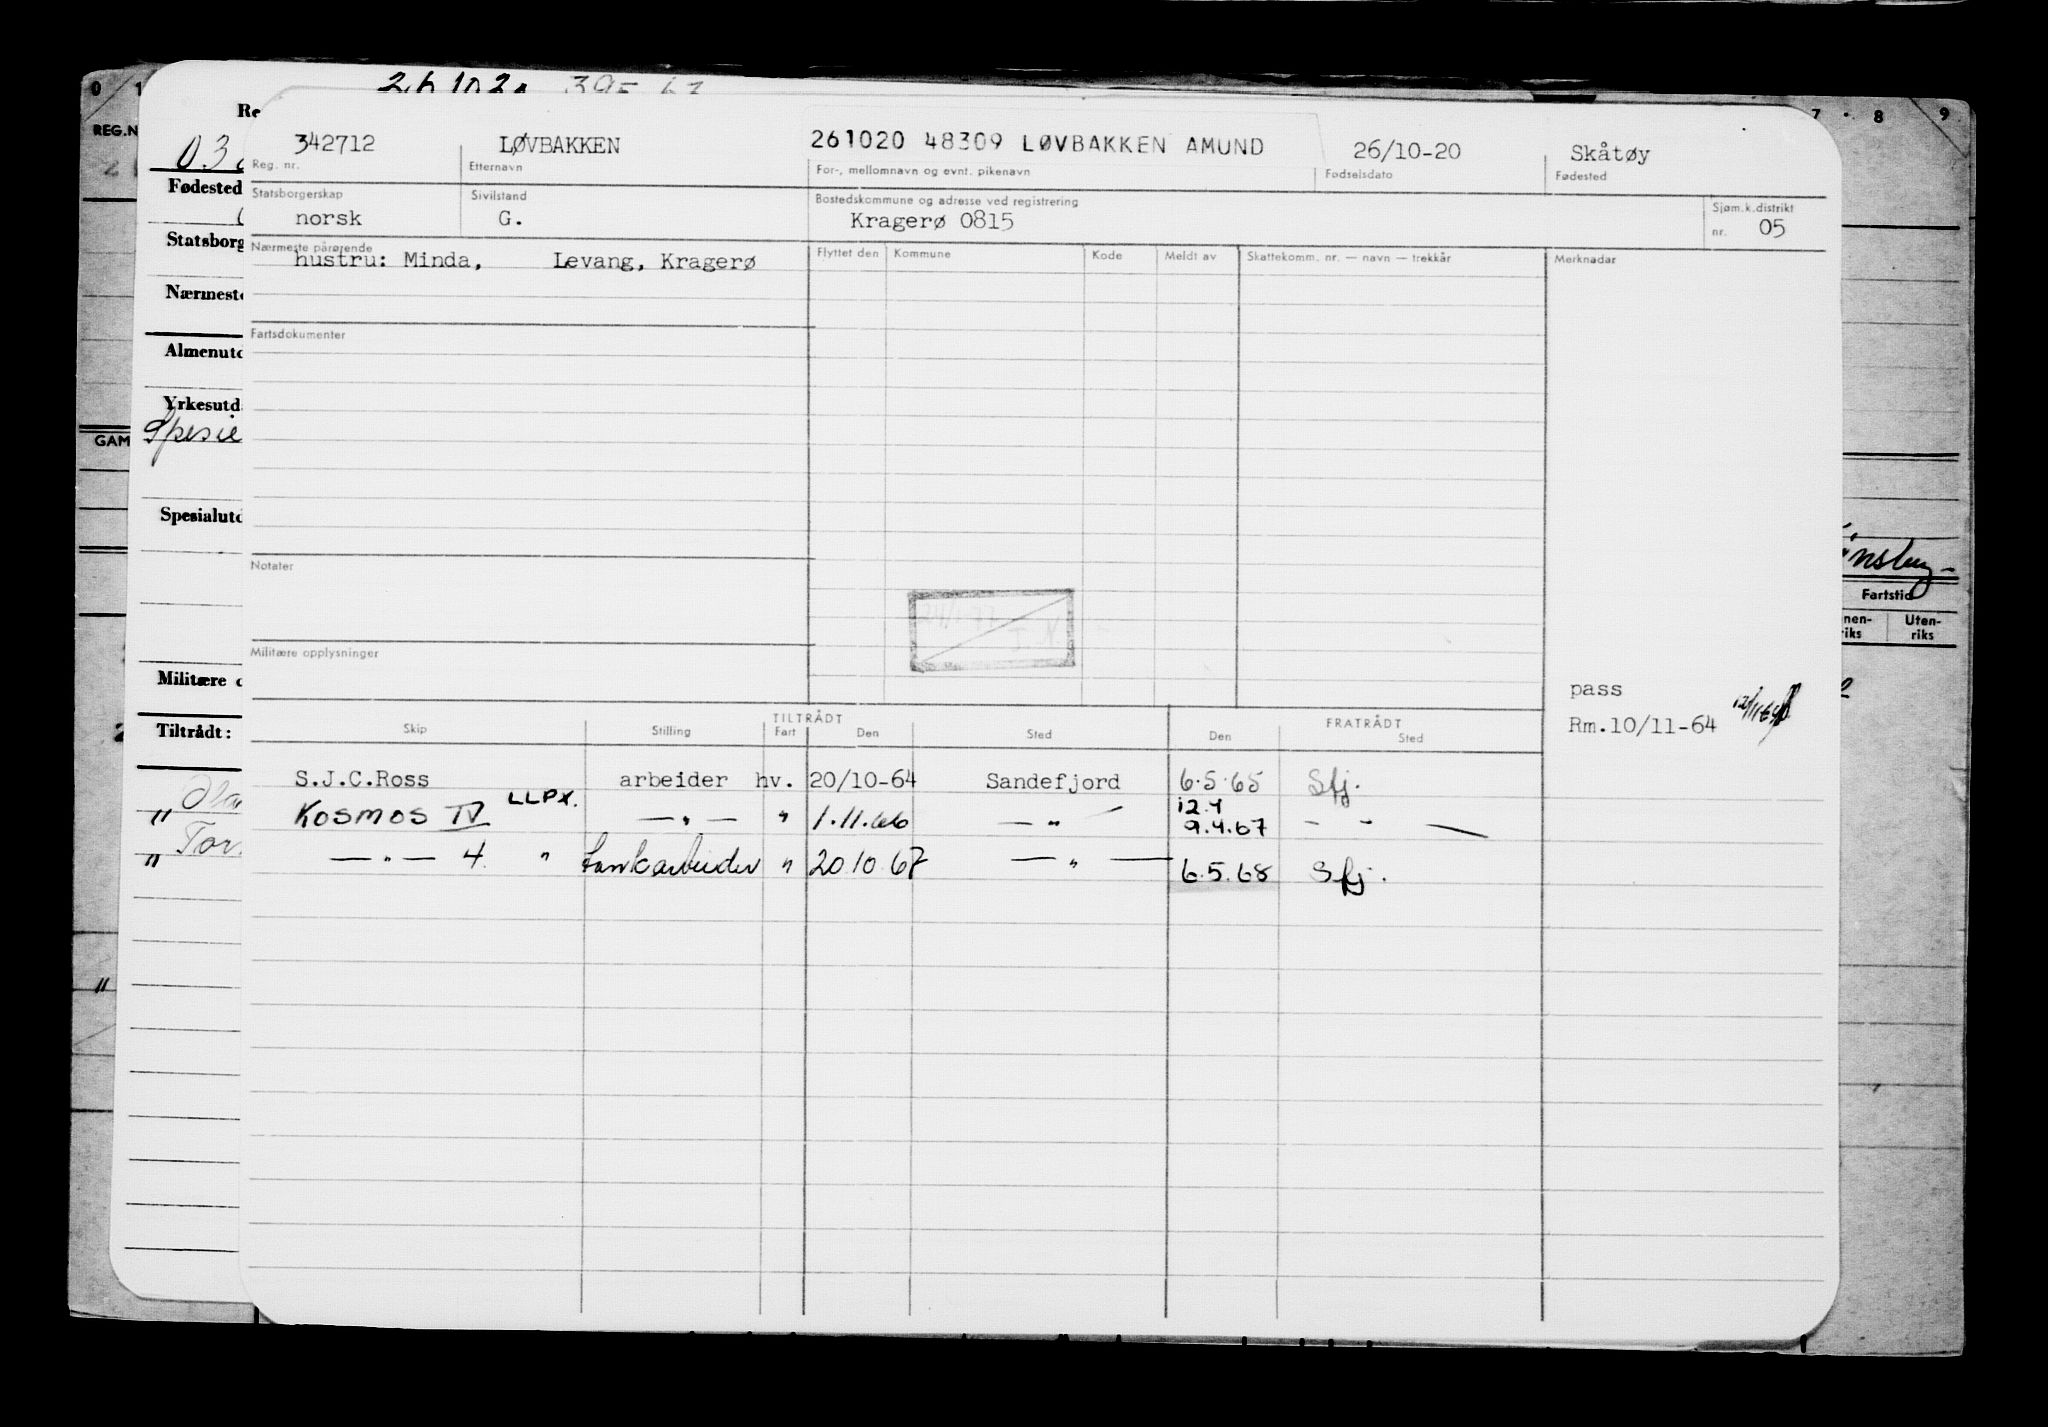 0 1 7 8 9
261020 395 67
REG.N
Re
03
342712 LØVBAKKEN 261020 48309 LØVBAKKEN AMUND 26/10-20 Skåtøy
Reg. nr. Etternavn For-, mellomnavn og evnt. pikenavn Fødselsdato Fødested
Fødested
Statsborgerskap Sivilstand Bostedskommune og adresse ved registrering Sjøm.k.distrikt
norsk G. Kragerø 0815 nr. 05
Statsborg
Nærmeste pårørende Flyttet den Kommune Kode Meldt av Skattekomm. nr. — navn — trekkår Merknader
hustru: Minda, Levang, Kragerø
Nærmeste
Fartsdokumenter
Almenutd
Yrkesutd
GAM Spesie
Spesialutd
Notater
Fartstid
nen- Uten-
riks riks
24/1-77
J. N
Militære opplysninger
Militære o
pass
Rm.10/11-64
Tiltrådt:
TILTRÅDT FRATRÅDT
Skip Stilling Fart Den Sted Den Sted
S.J.C.Ross arbeider hv. 20/10-64 Sandefjord 6.5.65 Sfj.
" KOSMOS IV LLPX. — " — " 1.11.66 — " — 12.4
9.4.67 - - —
" Tor
— " — 4. " tankarbeider " 20.10.67 — " — 6.5.68 Sfj.
"